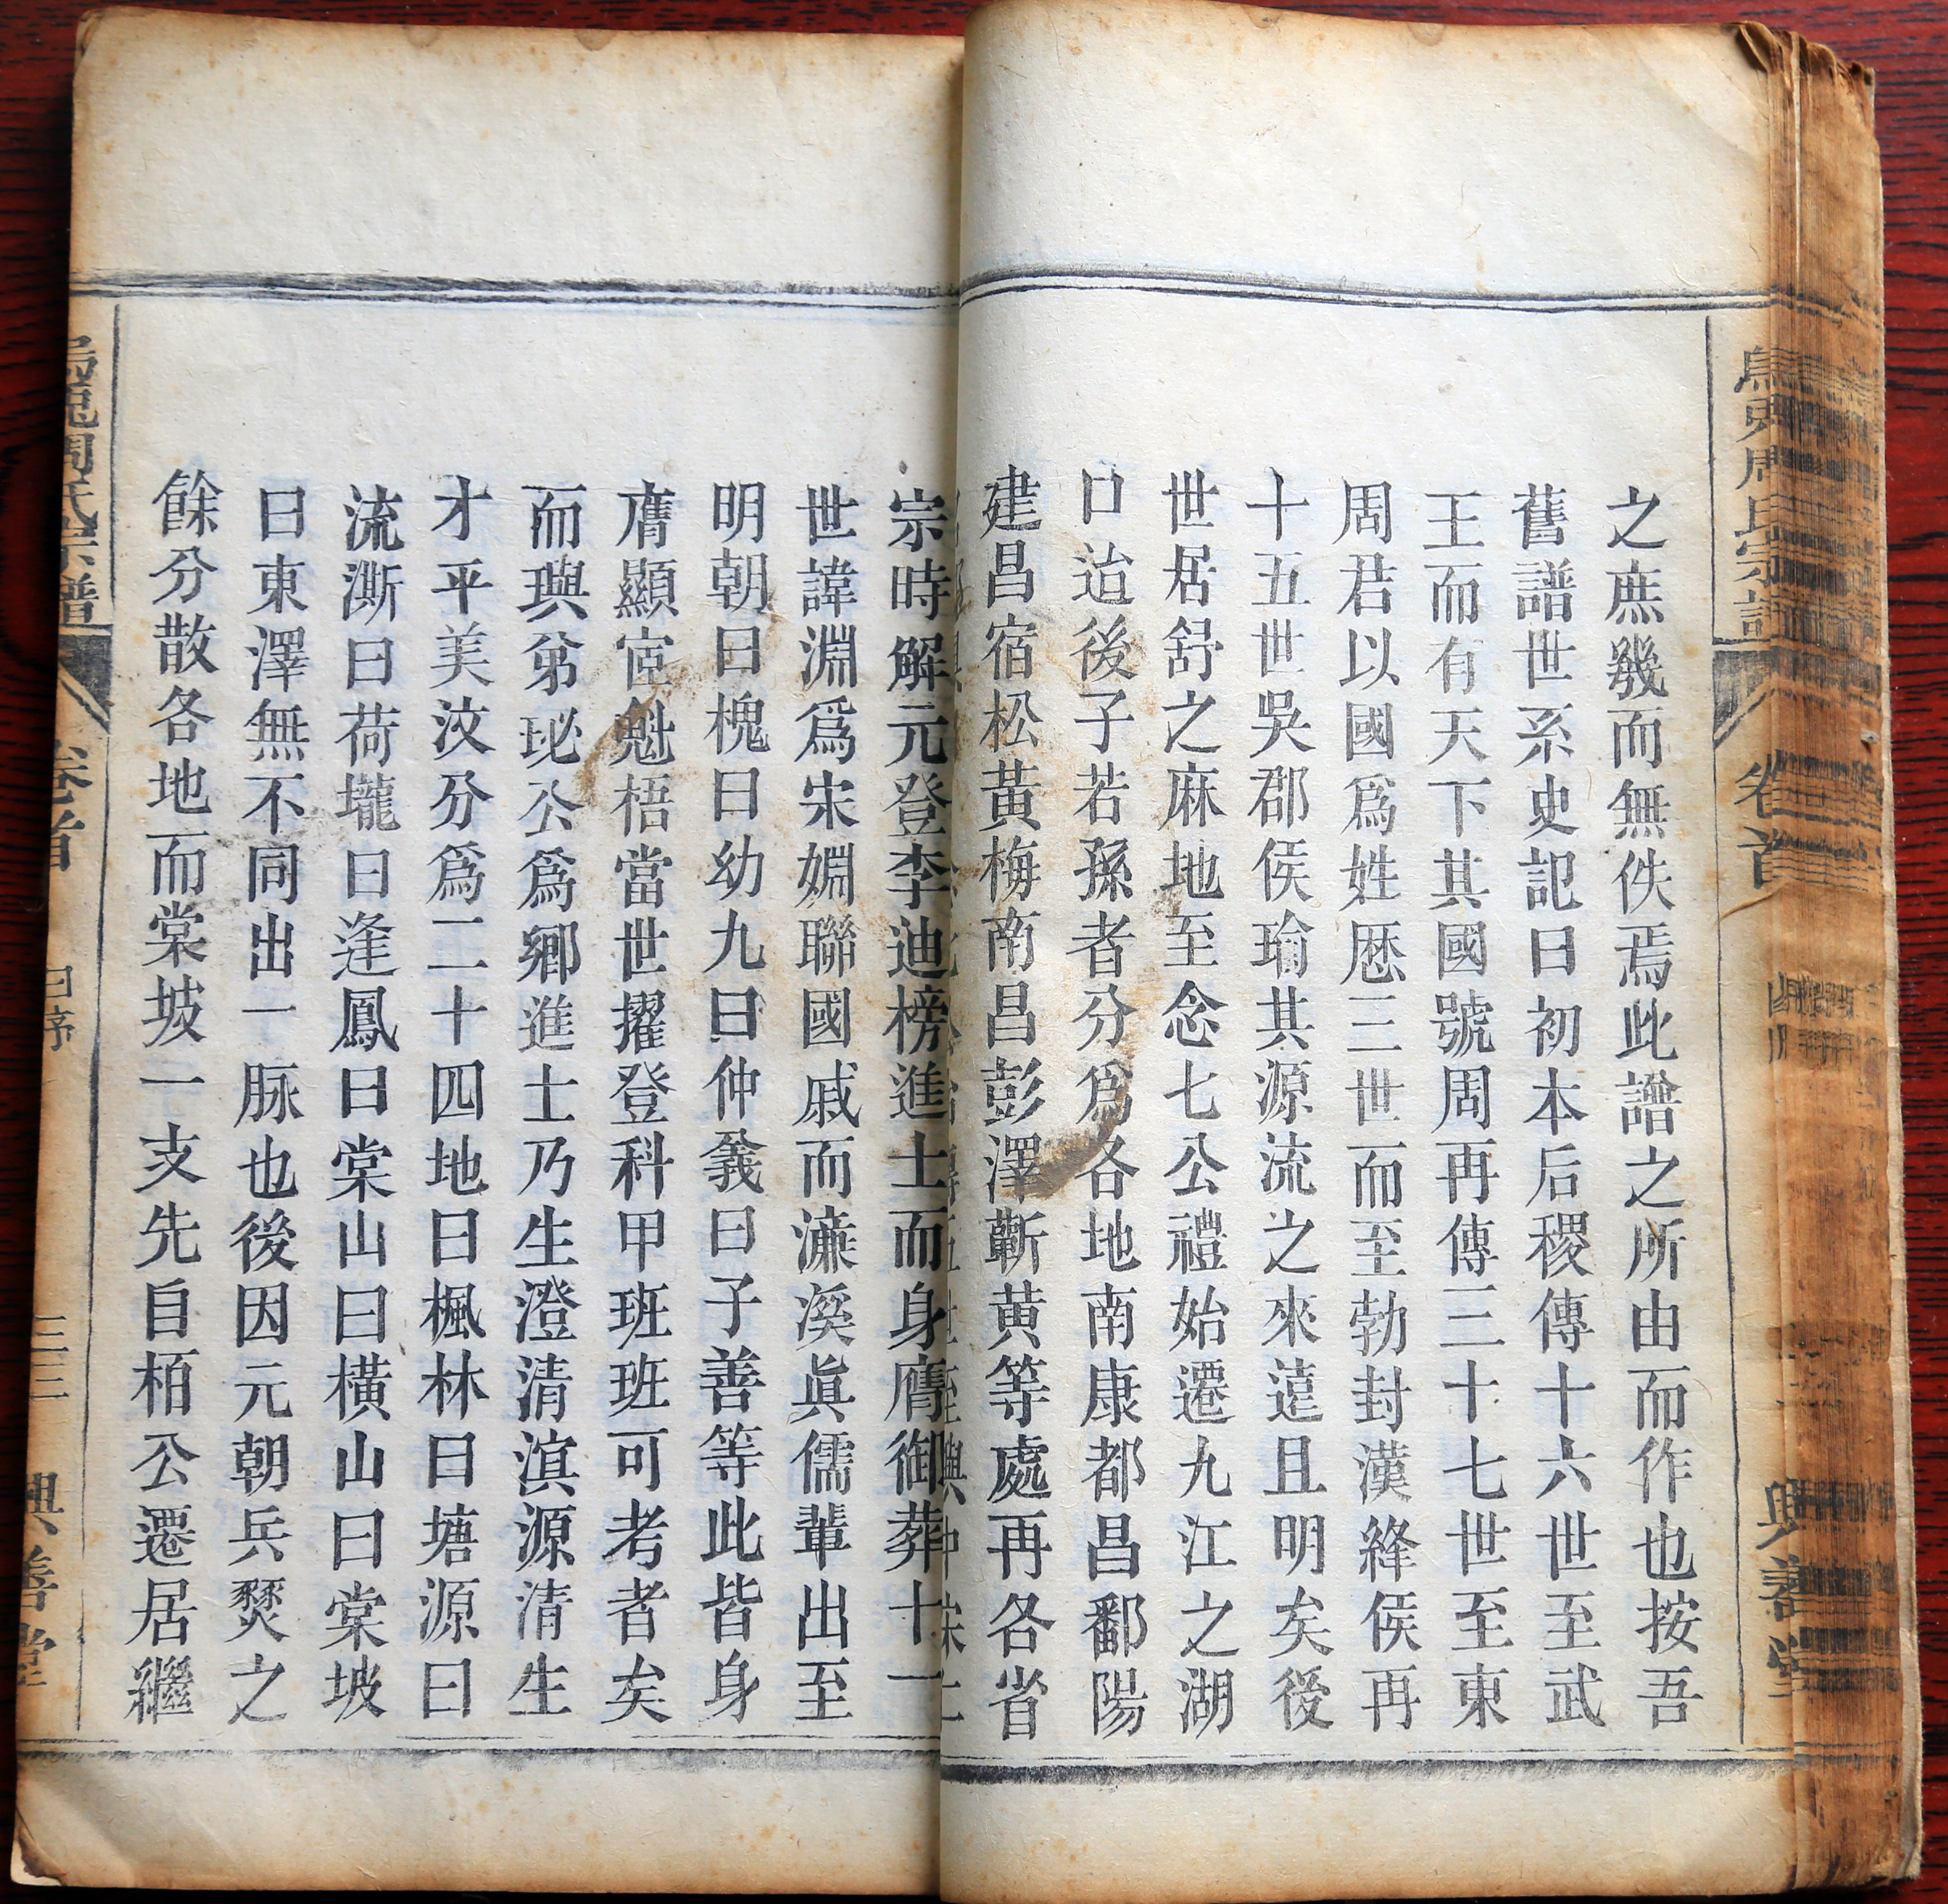 周氏宗譜
卷首
興善堂
之庶幾而無佚焉此譜之所由而作也按吾
舊譜世系史記曰初本后稷傳十六世至武
王而有天下其國號周再傳三十七世至東
周君以國爲姓歷三世而至勃封漢絳侯再
十五世吳郡侯瑜其源流之來遠且明矣後
世居舒之麻地至念七公禮始遷九江之湖
口迨後子若孫者分爲各地南康都昌鄱陽
建昌宿松黃梅南昌彭澤蘄黃等處再各省
宗時解元登李迪榜進士而身膺御葬十一
世諱淵爲宋婣聯國戚而濂溪眞儒輩出至
明朝曰槐曰幼九曰仲義曰子善等此皆身
膺顯宦魁梧當世擢登科甲班班可考者矣
而璵弟珌公爲鄉進士乃生澄清滇源清生
才平美汶分爲二十四地曰楓林曰塘源曰
流澌曰荷壠曰逢鳳曰棠山曰橫山曰棠坡
曰東澤無不同出一脉也後因元朝兵燹之
餘分散各地而棠坡一支先自栢公遷居繼
周氏宗譜
卷首
序
三三
興善堂